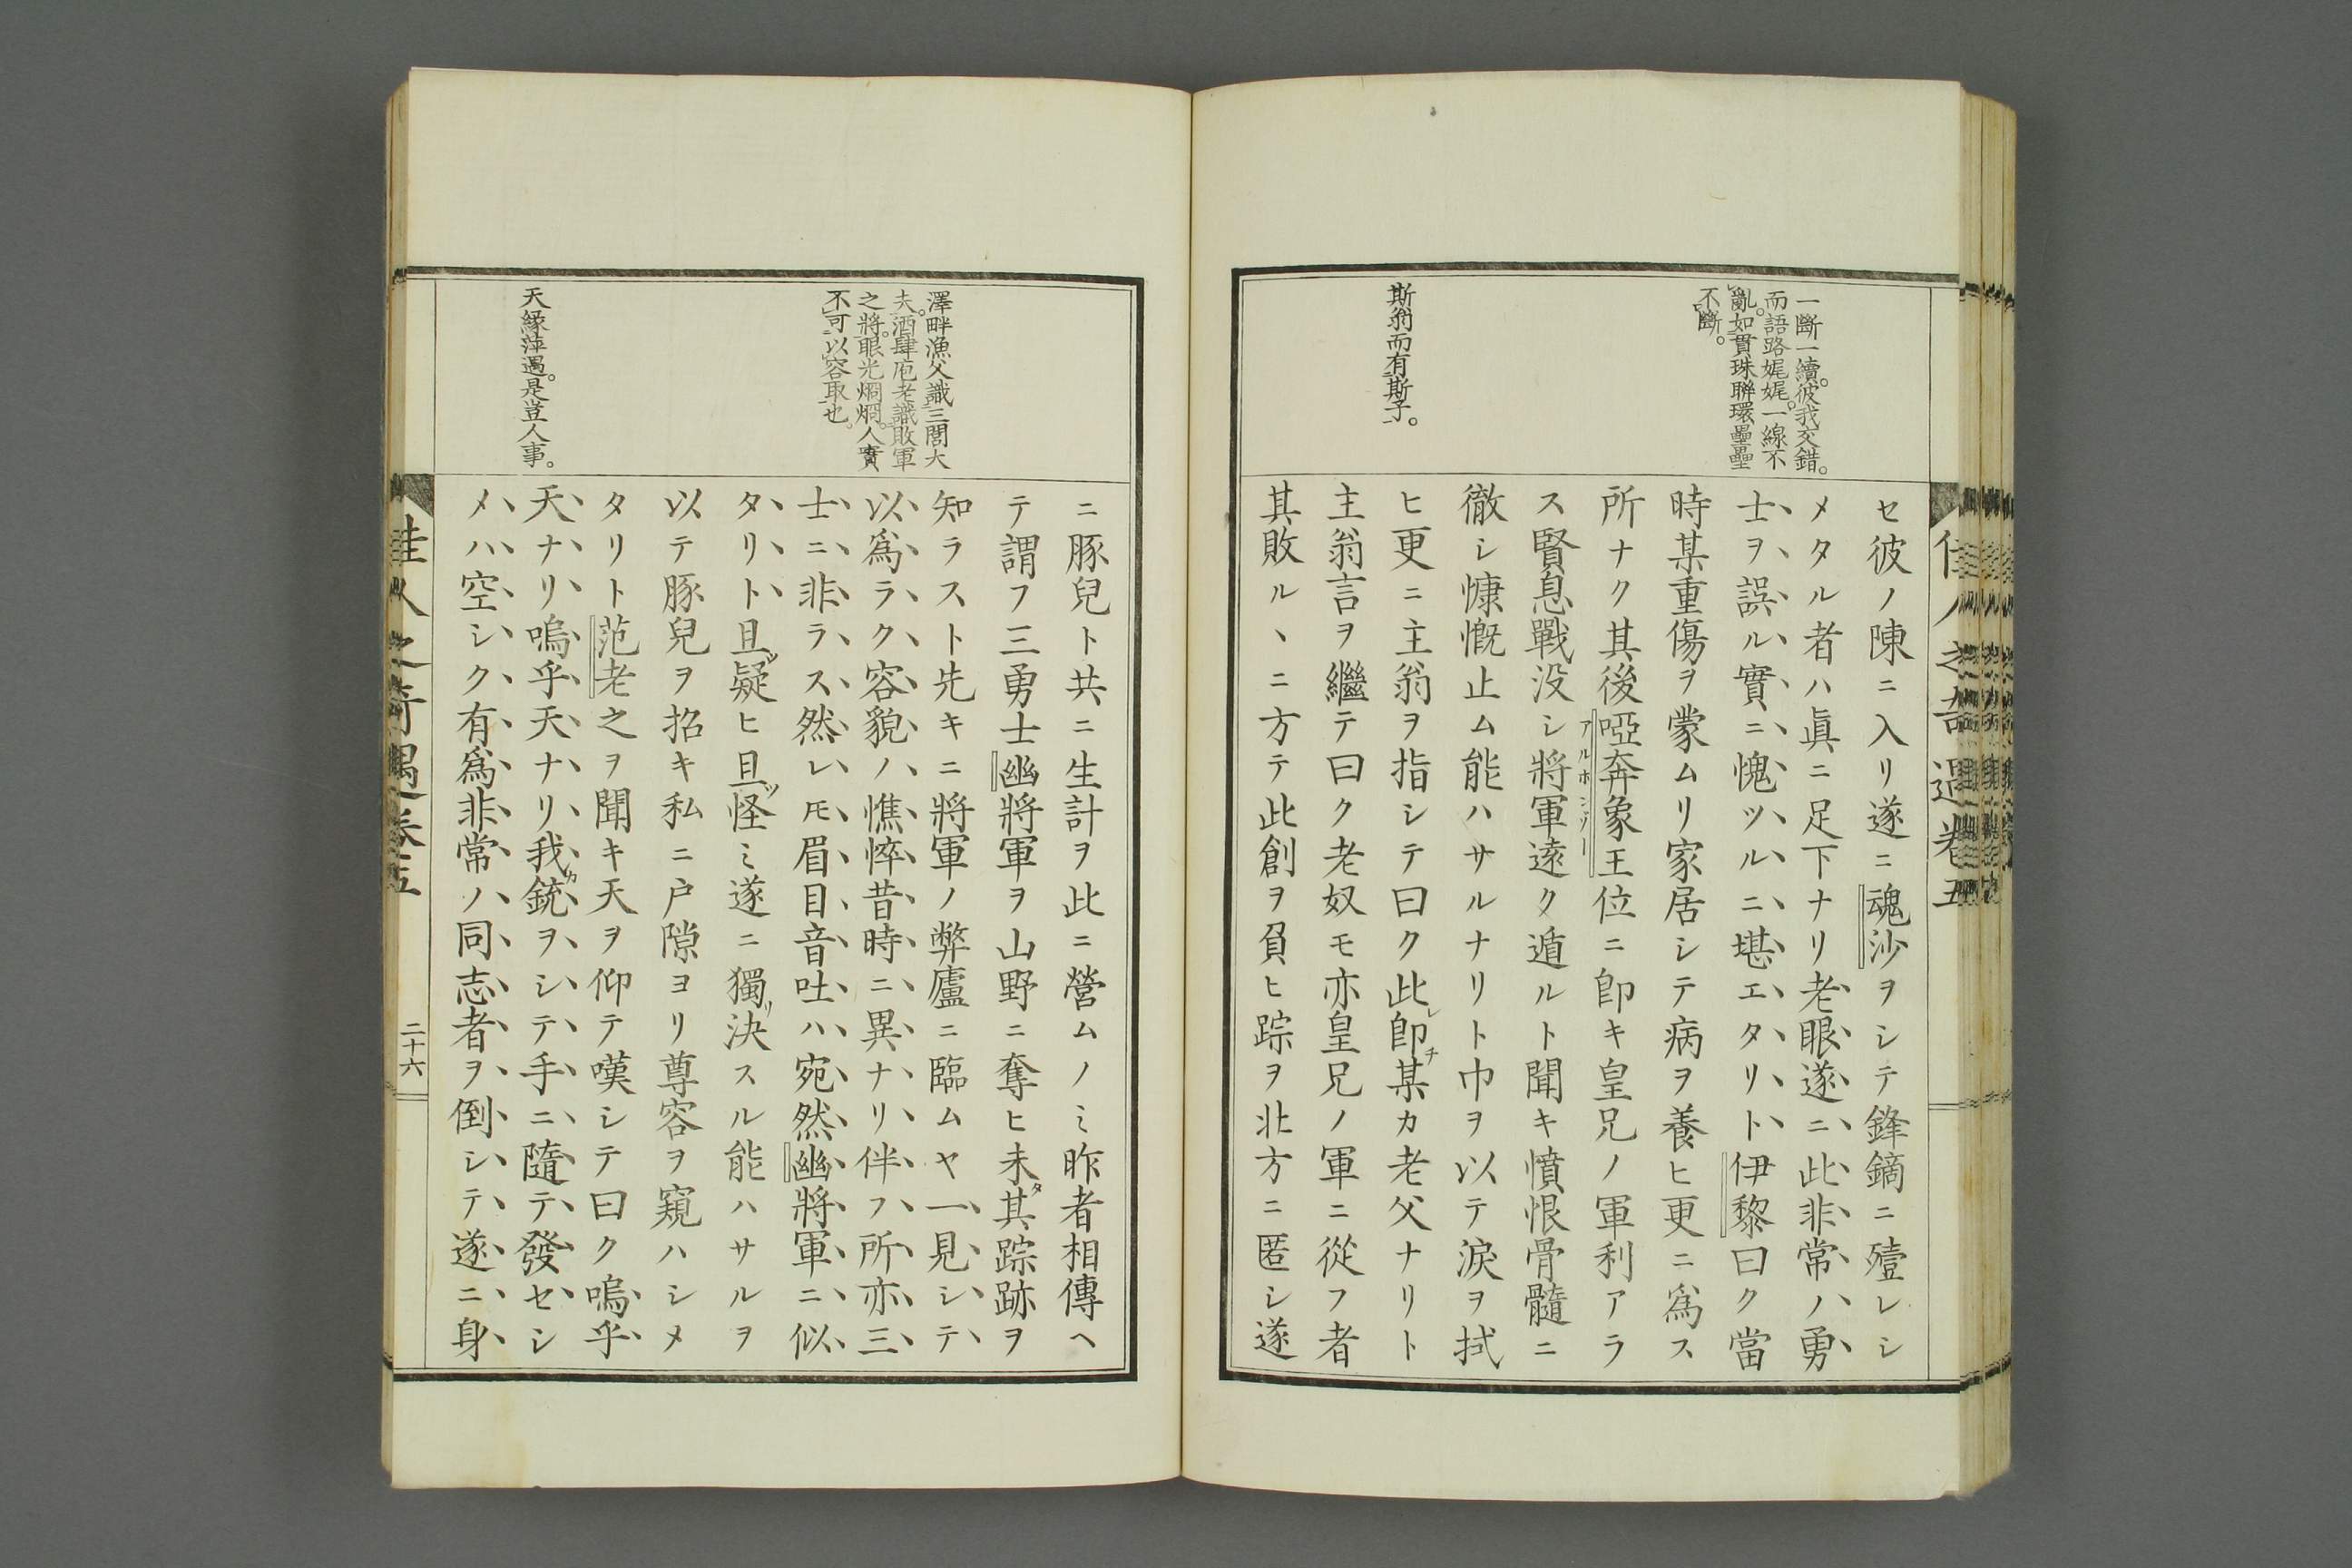 佳人之奇遇卷五
一斷一續。彼我交錯。
而語路娓娓。一線不
亂。如貫珠聯環壘壘
不斷。
斯翁而有斯子。
セ彼ノ陳ニ入リ遂ニ魂沙ヲシテ鋒鏑ニ殪レシ
メタル者ハ眞ニ足下ナリ老眼遂ニ此非常ノ勇
士ヲ誤ル實ニ愧ツルニ堪エタリト伊黎曰ク當
時某重傷ヲ蒙ムリ家居シテ病ヲ養ヒ更ニ爲ス
所ナク其後啞奔象王位ニ卽キ皇兄ノ軍利アラ
アルホンゾー
ス賢息戰没シ將軍遠ク遁ルト聞キ憤恨骨髓ニ
徹シ慷慨止ム能ハサルナリト巾ヲ以テ淚ヲ拭
ヒ更ニ主翁ヲ指シテ曰ク此レ卽チ某カ老父ナリト
主翁言ヲ繼テ曰ク老奴モ亦皇兄ノ軍ニ從フ者
其敗ルヽニ方テ此創ヲ負ヒ踪ヲ北方ニ匿シ遂
澤畔漁父識三閭大
夫。酒肆庖老識敗軍
之將。眼光烱烱。人實
不可以容取也。
天緣萍遇。是豈人事。
ニ豚兒ト共ニ生計ヲ此ニ營ムノミ昨者相傳ヘ
テ謂フ三勇士幽將軍ヲ山野ニ奪ヒ未タ其踪跡ヲ
知ラスト先キニ將軍ノ弊廬ニ臨ムヤ一見シテ
以爲ラク容貌ノ憔悴昔時ニ異ナリ伴フ所亦三
士ニ非ラス然レ𪜈眉目音吐ハ宛然幽將軍ニ似
タリト且ツ疑ヒ且ツ怪ミ遂ニ獨リ決スル能ハサルヲ
以テ豚兒ヲ招キ私ニ户隙ヨリ尊容ヲ窺ハシメ
タリト范老之ヲ聞キ天ヲ仰テ嘆シテ曰ク嗚乎
天ナリ嗚乎天ナリ我カ銃ヲシテ手ニ隨テ發セシ
メハ空シク有爲非常ノ同志者ヲ倒シテ遂ニ身
佳人之奇遇卷五
二十六